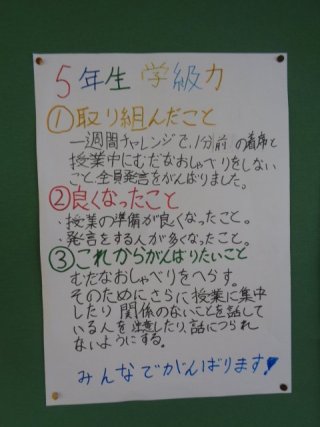 5年生 学級力
①取り組んだこと
一週間チャレンジで、1分前の着席と
授業中にむだなおしゃべりをしない
こと、全員発言をがんばりました。
②良くなったこと
・授業の準備が良くなったこと。
・発言をする人が多くなったこと。
③これからがんばりたいこと
むだなおしゃべりをへらす。
そのためにさらに授業に集中
したり関係のないことを話して
いる人を注意したり、話につられ
ないようにする。
みんなでがんばります!